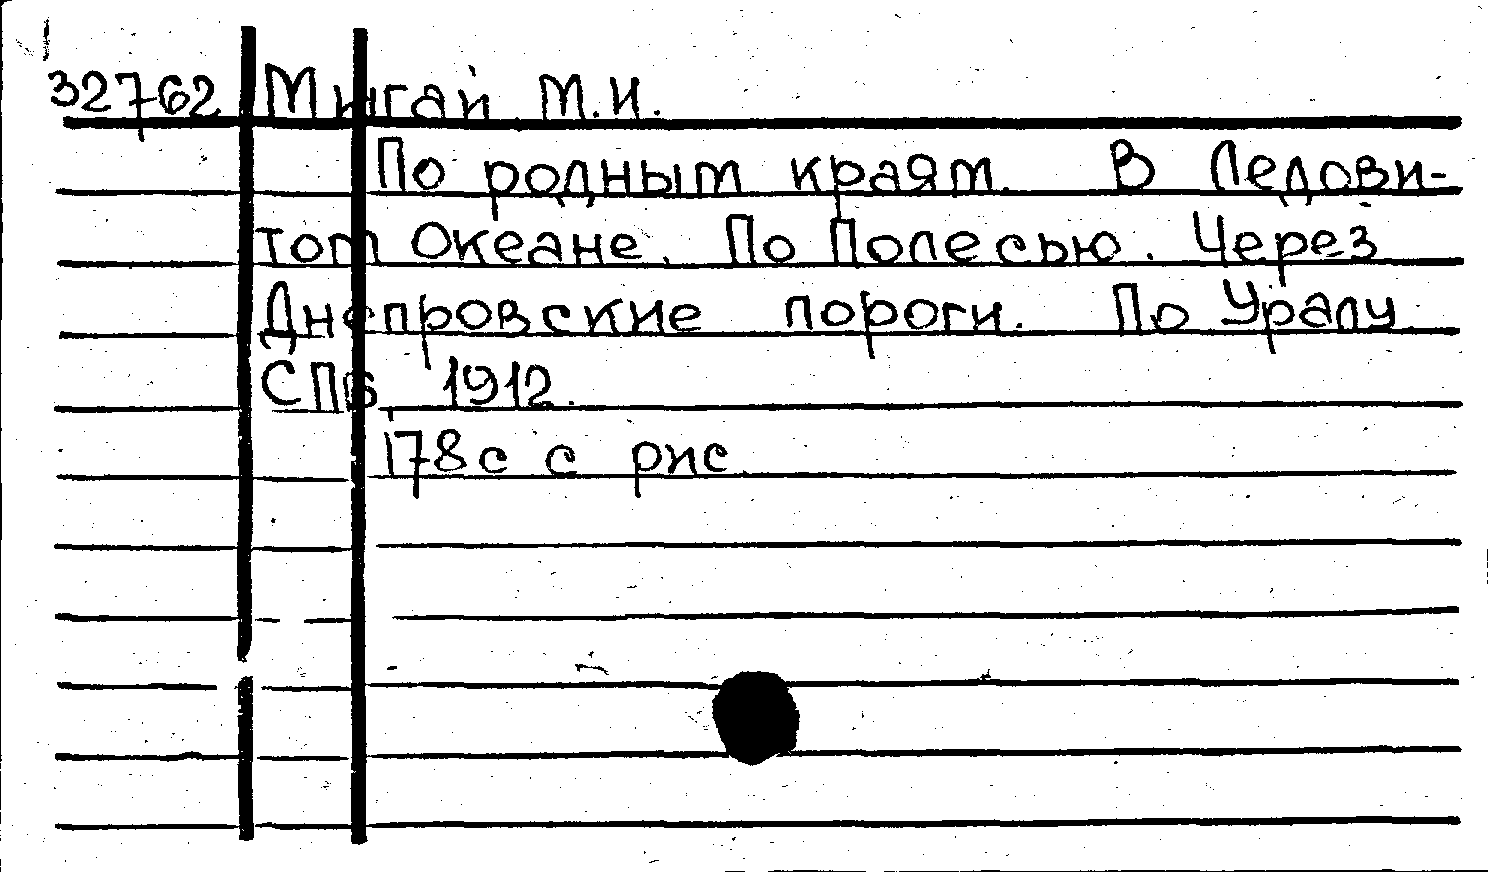 32762 Мигай М.И.
По родным краям. В Ледови-
том Океане. По Полесью. Через
Днепровские пороги. По Уралу
СПб 1912.
178с с рис.